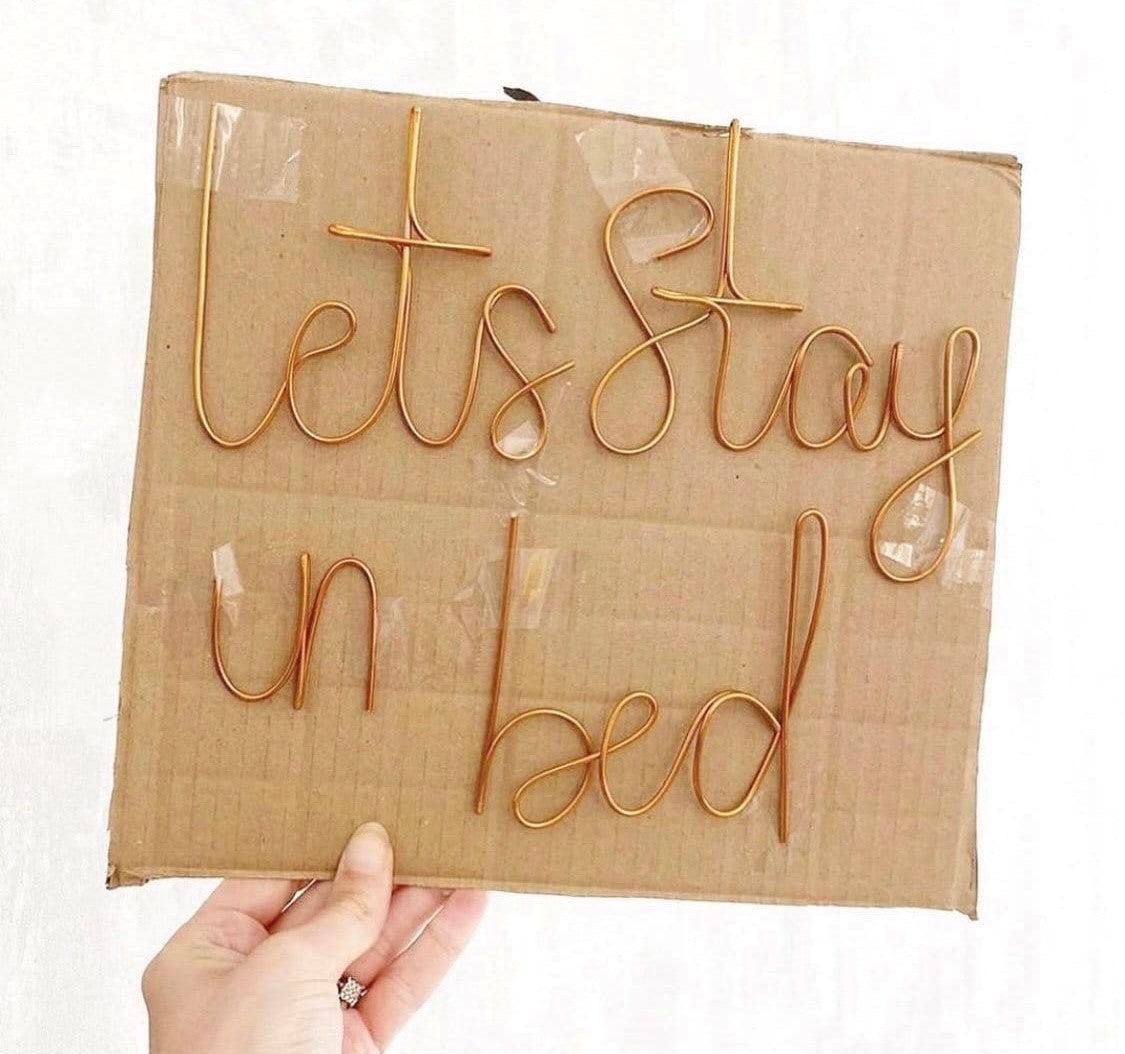 lets stay
in bed